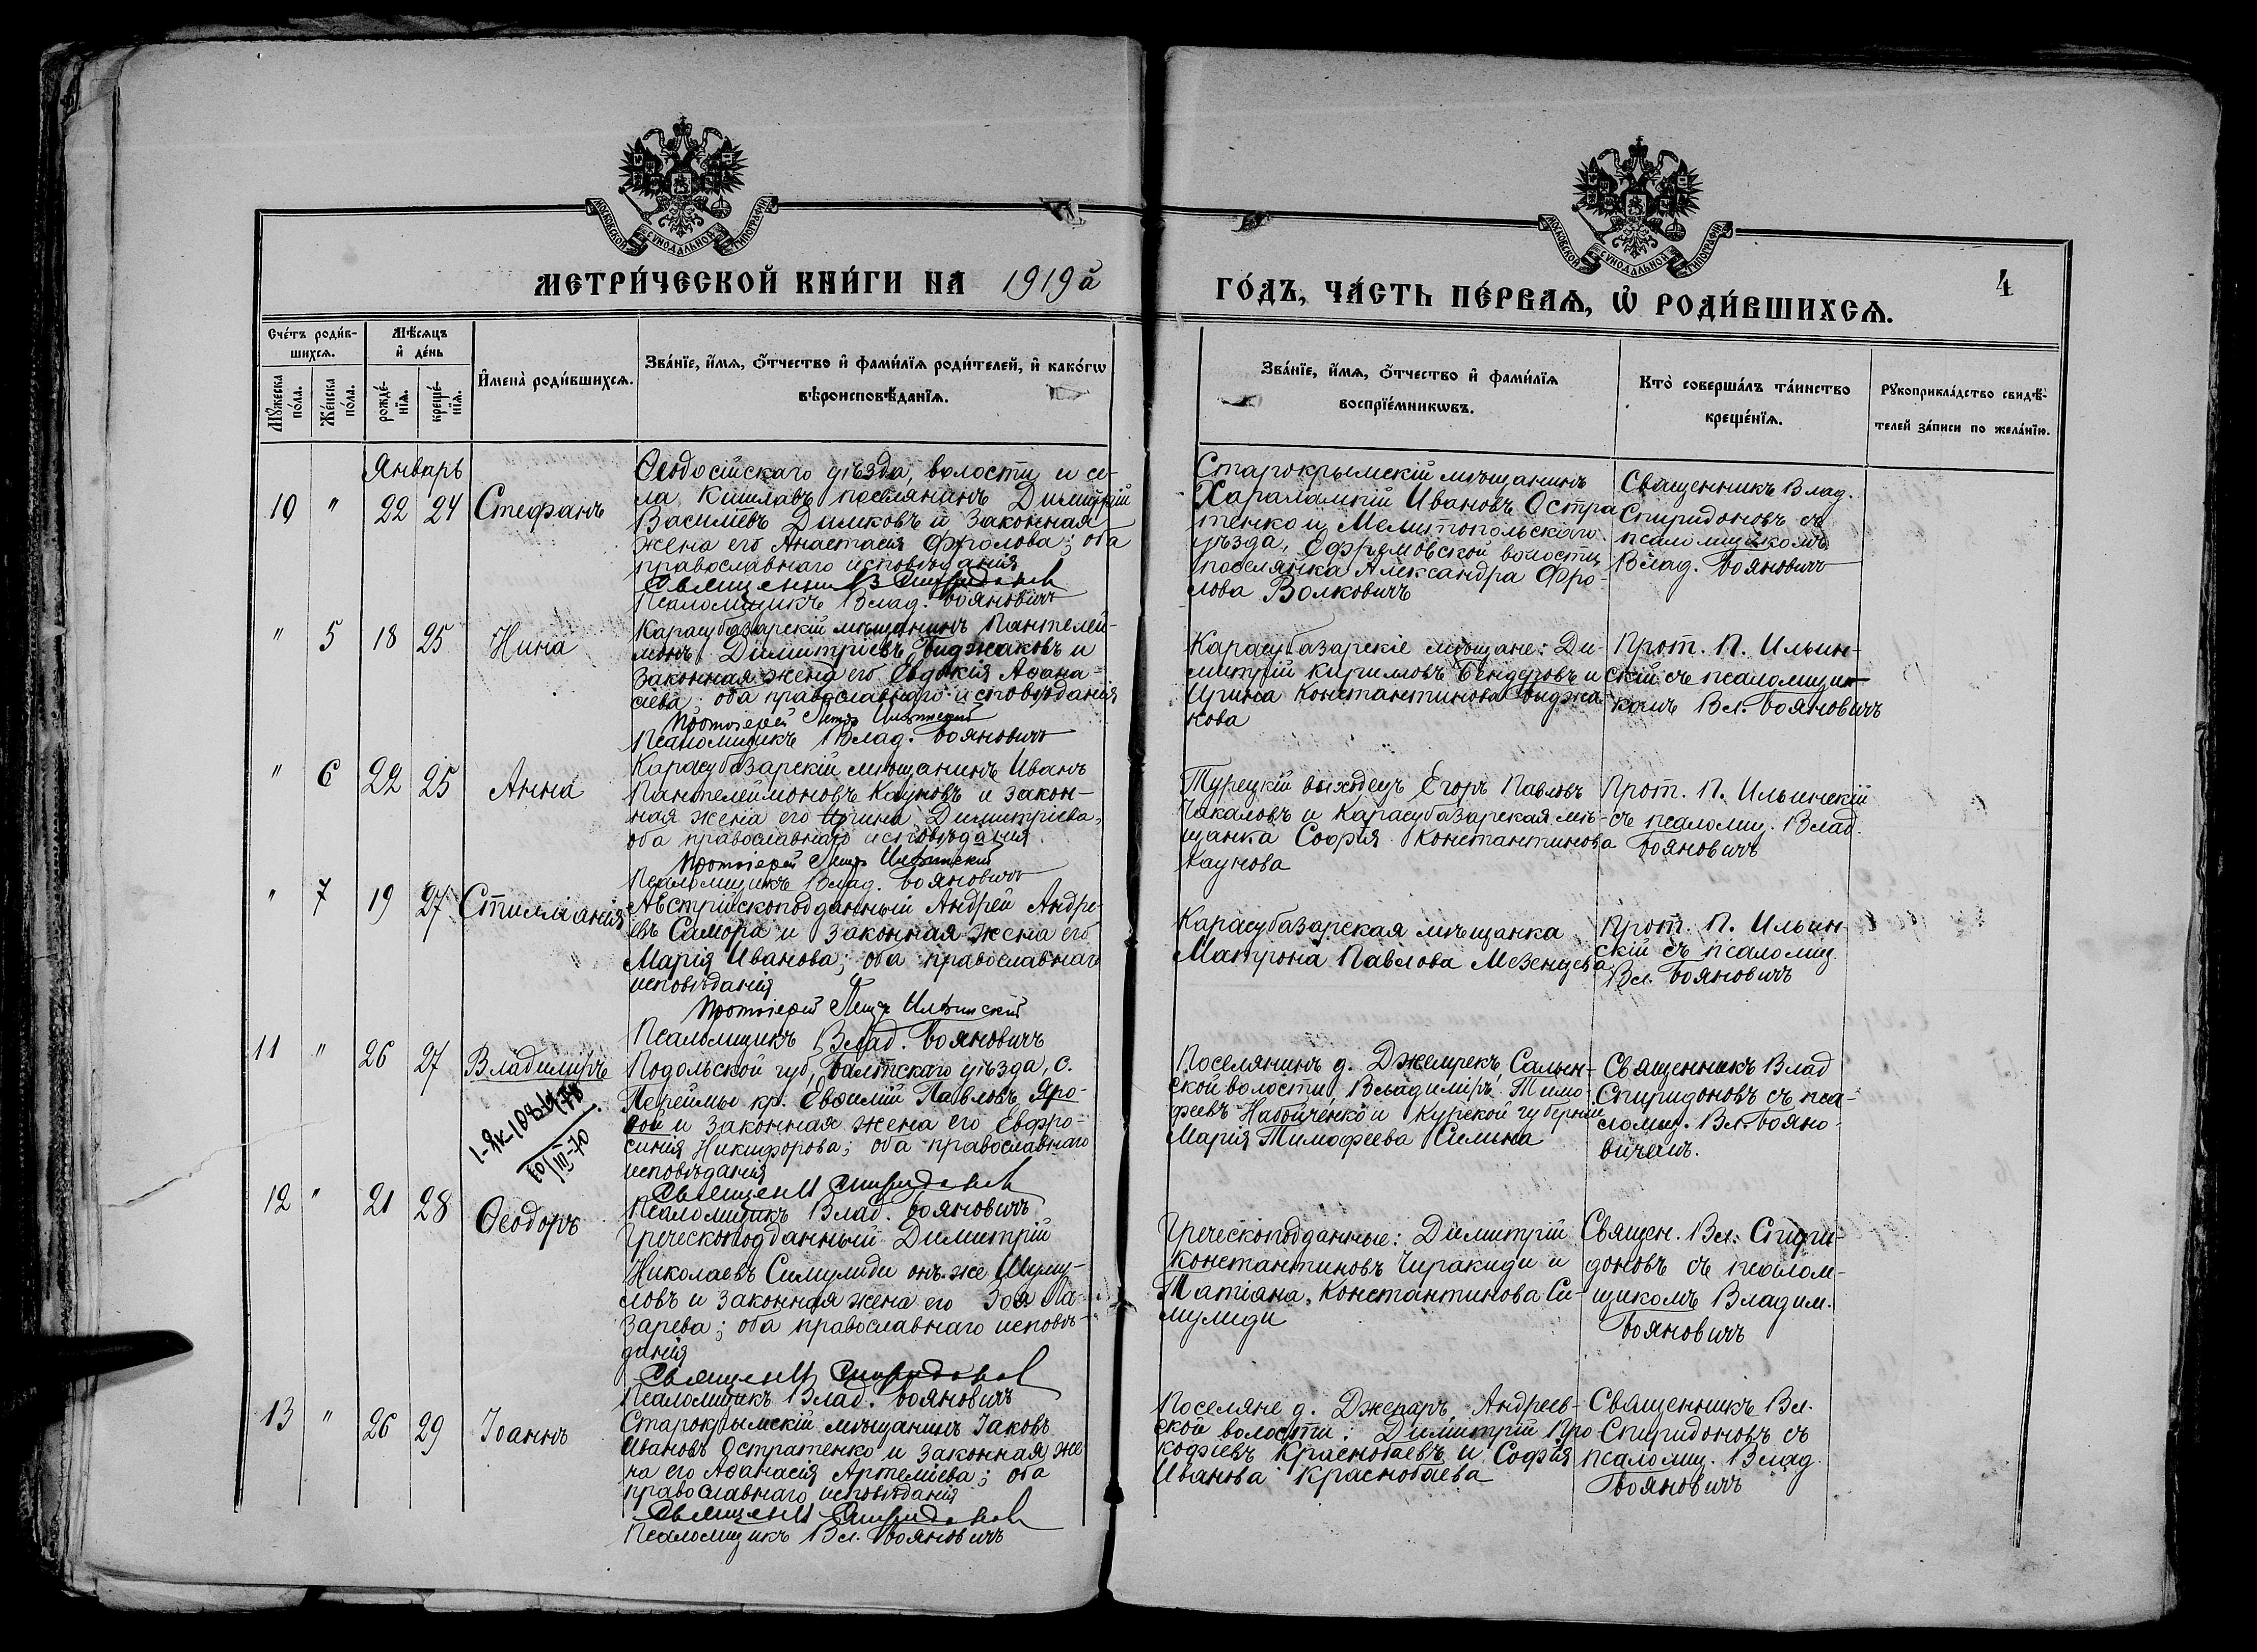 МОСКОВСКОЙ СѴНОДАЛЬНОЙ ТИПОГРАФІИ
МОСКОВСКОЙ СѴНОДАЛЬНОЙ ТИПОГРАФІИ
МЕТРИ́ЧЕСКОЙ КНИ́ГИ НА 1919й
ГО́ДЪ, ЧА́СТЬ ПЕ́РВАѦ, Ѡ҆ РОДИ́ВШИХСѦ.
4
Сче́тъ роди́в-
шихсѧ.
Мѣ́сѧцъ
и҆ де́нь
Мꙋ́жеска по́ла.
Же́нска по́ла.
рожде́-
нїѧ.
креще́-
нїѧ.
И҆мена̀ роди́вшихсѧ.
Зва́нїе, и҆́мѧ, ѻ҆́тчество и҆ фами́лїѧ роди́телей, и҆ како́гѡ
вѣроисповѣ́данїѧ.
Зва́нїе, и҆́мѧ, ѻ҆́тчество и҆ фами́лїѧ
воспрїе́мникѡвъ.
Кто̀ соверша́лъ та́инство
креще́нїѧ.
Рꙋкоприкла́дство свидѣ́-
телей за́писи по жела́нїю.
Январь
10 " 22 24 Стефанъ
Ѳеодосійскаго уѣзда, волости и се-
ла Кишлавъ поселянинъ Димитрій
Василіевъ Димковъ и законная
жена его Анастасія Фролова; оба
православнаго исповѣданія
Священникъ Спиридоновъ
Псаломщикъ Влад. Бояновичъ
Старокрымскій мѣщанинъ
Харалампій Ивановъ Остра
тенко и Мелитопольскаго
уѣзда, Ефремовской волости
поселянка Александра Фро-
лова Волковичъ
Священникъ Влад.
Спиридоновъ съ
псаломщикомъ
Влад. Бояновичъ
" 5 18 25 Нина
Карасубазарскій мѣщанинъ Пантелей-
монъ Димитріевъ Биджаковъ и
законная жена его Евдокія Аѳана-
сіева; оба православнаго исповѣданія
Протоіерей Петръ Ильинскій
Псаломщикъ Влад. Бояновичъ
Карасубазарскіе мѣщане: Ди-
митрій Кирилловъ Бендеровъ и
Ирина Константинова Биджа-
кова
Прот. П. Ильин-
скій съ псаломщи-
комъ Вл. Бояновичъ
" 6 22 25 Анна
Карасубазарскій мѣщанинъ Иванъ
Пантелеймоновъ Кауновъ и закон-
ная жена его Ирина Димитріева,
оба православнаго исповѣданія.
Протоіерей Петръ Ильинскій
Псаломщикъ Влад. Бояновичъ
Турецкій выходецъ Егоръ Павловъ
Чакаловъ и Карасубазарская мѣ-
щанка Софія Константинова
Каунова
Прот. П. Ильинскій
съ псаломщ. Влад.
Бояновичъ
" 7 19 27 Стилланія
Австрійскоподданный Андрей Андре-
евъ Самора и законная жена его
Марія Иванова; оба православнаго
исповѣданія
Протоіерей Петръ Ильинскій
Псаломщикъ Влад. Бояновичъ
Карасубазарская мѣщанка
Матрона Павлова Мезенцева
Прот. П. Ильин-
скій съ псаломщ.
Вл. Бояновичъ
11 " 26 27 Владиміръ
10/III-70
Подольской губ, Балтскаго уѣзда, с.
Переймы кр. Евѳимій Павловъ Яро-
вой и законная жена его Евфро-
синія Никифорова; оба православнаго
исповѣданія
Священникъ Спиридоновъ
Псаломщикъ Влад. Бояновичъ
Поселянинъ д. Джемрекъ Салын-
ской волости, Владиміръ Тимо-
феевъ Набойченко и Курской губерніи
Марія Тимофеева Силина
Священникъ Влад
Спиридоновъ съ пса-
ломщ. Вл. Бояно-
вичемъ.
12 " 21 28 Ѳеодоръ
Греческоподданный Димитрій
Николаевъ Симулиди онъ же Шуму-
ловъ и законная жена его Зоя Ла-
зарева; оба православнаго исповѣ-
данія
Священникъ Спиридоновъ
Псаломщикъ Влад. Бояновичъ
Греческоподданные: Димитрій
Константиновъ Чиракиди и
Татіана Константинова Си-
мулиди
Священ. Вл. Спири-
доновъ съ псалом-
щикомъ Владим.
Бояновичъ
13 " 26 29 Іоаннъ
Старокрымскій мѣщанинъ Іаковъ
Ивановъ Остратенко и законная же
на его Аѳанасія Артеміева; оба
православнаго исповѣданія
Священникъ Спиридоновъ
Псаломщикъ Вл. Бояновичъ
Поселяне д. Джепаръ, Андреев-
ской волости: Димитрій Про
кофіевъ Краснобаевъ и Софія
Иванова Краснобаева
Священникъ Вл.
Спиридоновъ съ
псаломщ. Влад.
Бояновичъ